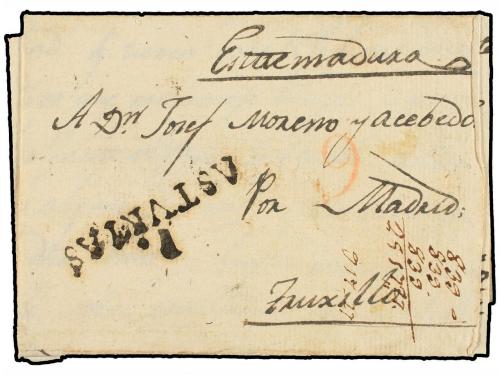 Estremadura
A Dn Josef Moreno y Acebedo
Por Madrid:
Truxillo
ASTVRIAS
9
833
833
833